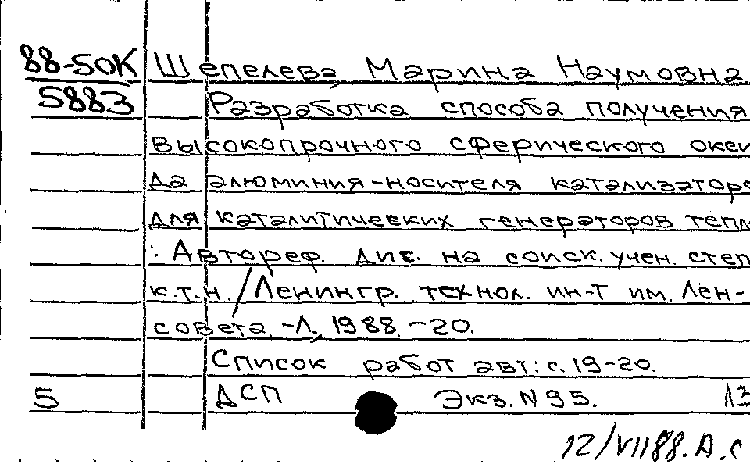 88-50К Шепелева Марина Наумовна
5883 Разработка способа получения
высокопрочного сферического окси
да алюминия-носителя катализатора
для каталитических генераторов тепл
: Автореф. дис. на соиск. учен. степ
к.т.н. / Ленингр. технол. ин-т им. Лен-
совета. -Л., 1988. -20.
Список работ авт.: с. 19-20.
5 ДСП Экз. N 95.
12/VII88. А.С